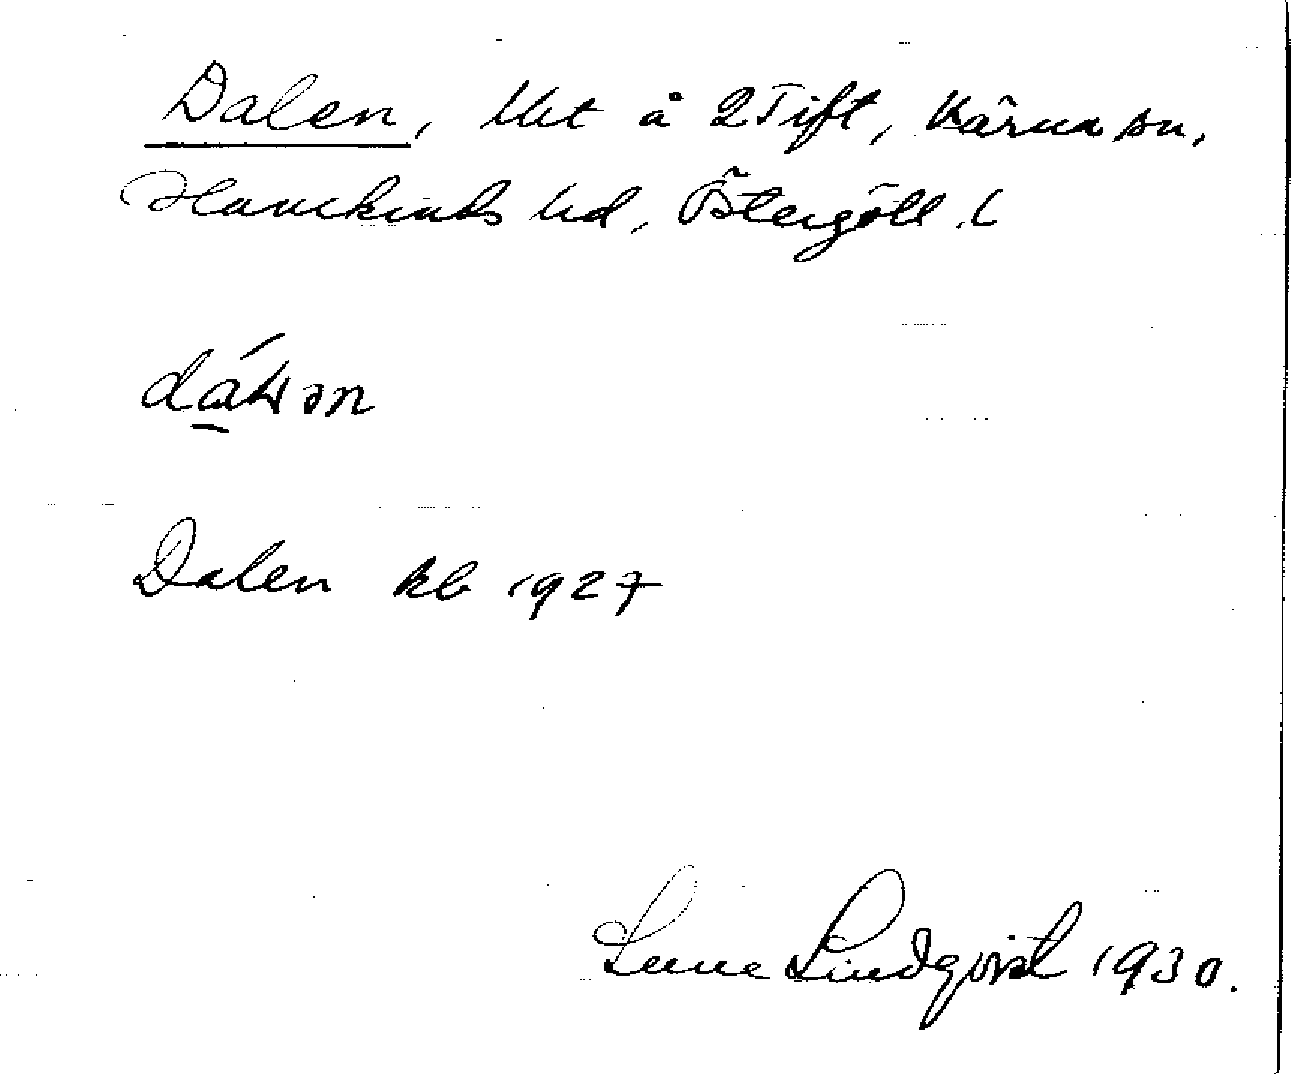 Dalen, lht å 2 Tift, Kärna sn,
Hanekinds hd, Östergötl. l
Dalen kb 1927
Sune Lindqvist 1930.